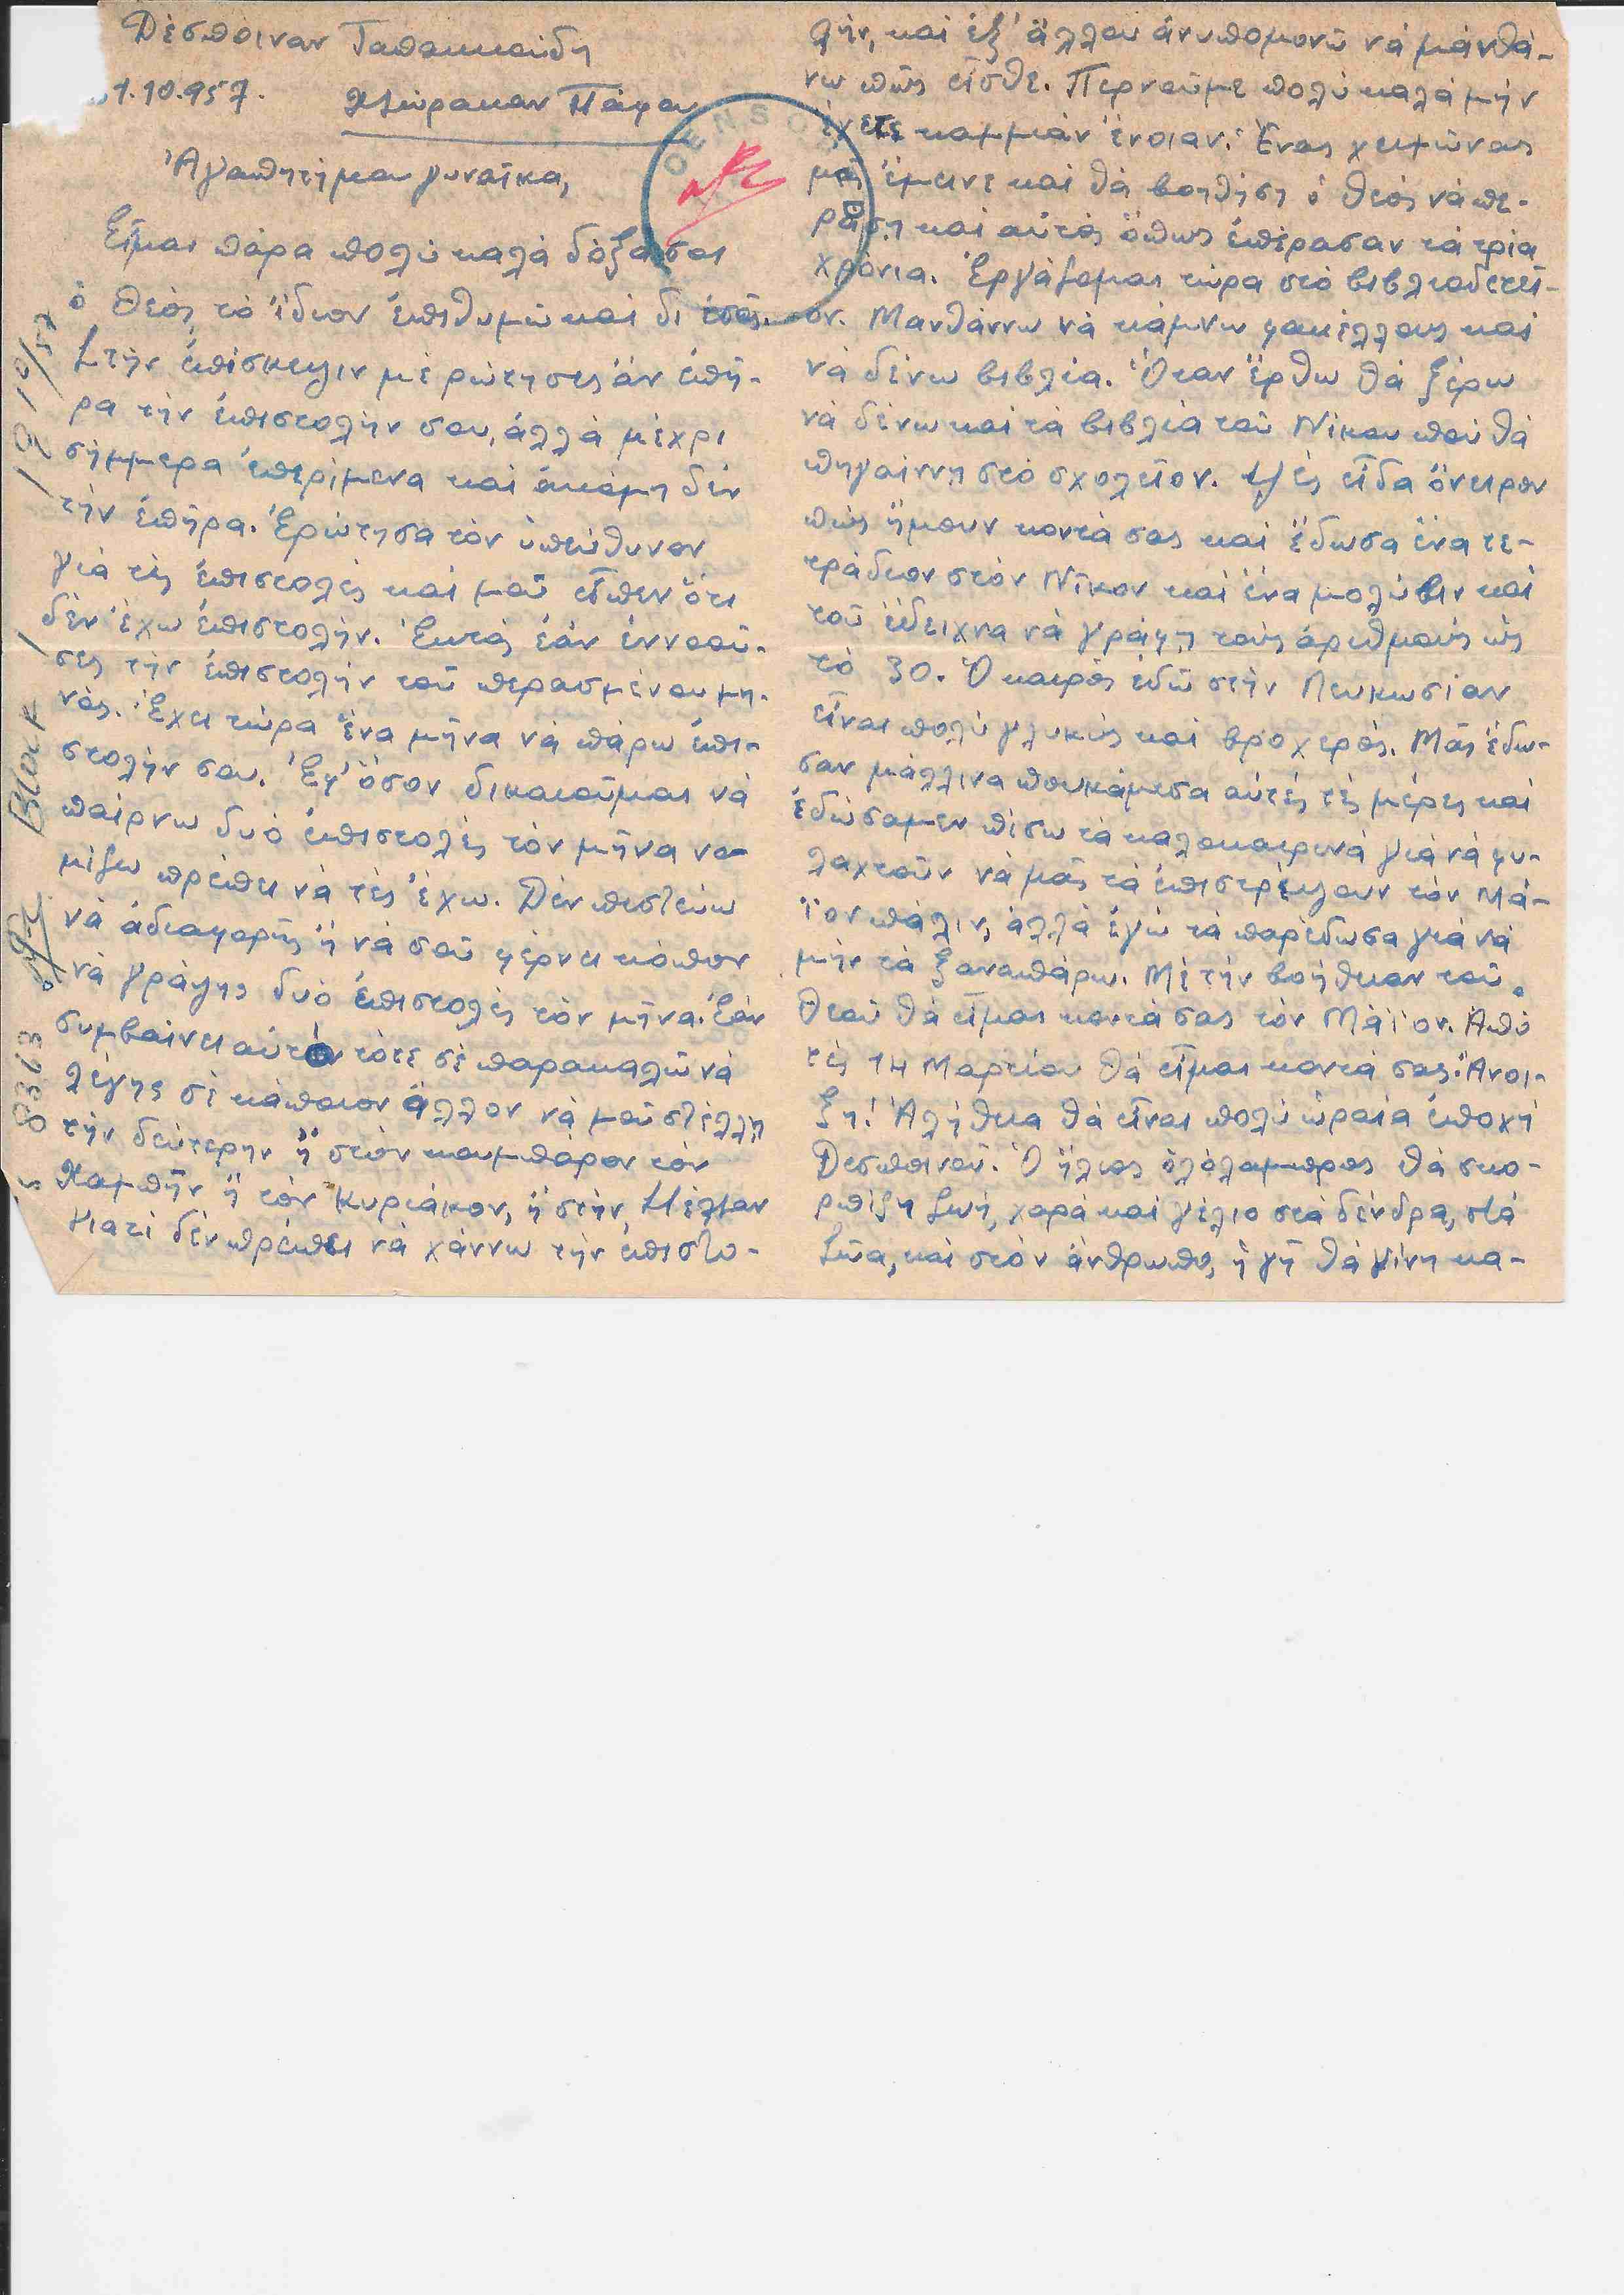 Δέσποιναν Παπακκούδη
1.10.957. Χλώρακαν Πάφου
CENSO
Ἀγαπητή μου γυναῖκα,
Εἶμαι πάρα πολύ καλά δόξα σοι
ὁ Θεός, τό ἴδιον ἐπιθυμῶ καί δι' ἐσᾶς.
Στήν ἐπίσκεψιν μέ ρώτησες ἄν ἐπῆ-
ρα τήν ἐπιστολήν σου, ἀλλά μέχρι
σήμμερα ἐπερίμενα καί ἀκόμη δέν
τήν ἐπῆρα. Ἐρώτησα τόν ὑπεύθυνον
γιά τές ἐπιστολές καί μοῦ εἶπεν ὅτι
δέν ἔχω ἐπιστολήν. Ἐκτός ἐάν ἐννοοῦ-
σες τήν ἐπιστολήν τοῦ περασμένου μη-
νός. Ἔχει τώρα ἕνα μῆνα νά πάρω ἐπι-
στολήν σου. Ἐφ' ὅσον δικαιοῦμαι νά
παίρνω δυό ἐπιστολές τόν μῆνα νο-
μίζω πρέπει νά τές ἔχω. Δέν πιστεύω
νά ἀδιαφορῆς ἤ νά σοῦ φέρνει κόπον
νά γράψης δυό ἐπιστολές τόν μῆνα. Ἐάν
συμβαίνει αὐτό τότε σέ παρακαλῶ νά
λέγης σέ κάποιον ἄλλον νά μοῦ στέλλη
τήν δεύτερην ἤ στόν κουμπάρον τόν
Χαμπῆν ἤ τόν Κυριάκον, ἤ στήν
Γιατί δέν πρέπει νά χάννω τήν ἐπιστο-
8363 Block / 19/10/57
λήν, καί ἐξ' ἄλλου ἀνυπομονῶ νά μανθά-
νω πῶς εἶσθε. Περνοῦμε πολύ καλά μήν
ἔχετε καμμιάν ἔνοιαν. Ἕνας χειμώνας
μᾶς ἔμεινε καί θά βοηθήση ὁ Θεός νά πε-
ράση καί αὐτός ὅπως ἐπέρασαν τά τρία
χρόνια. Ἐργάζομαι τώρα στό βιβλιοδετεῖ-
ον. Μανθάννω νά κάμνω φακέλλους καί
νά δένω βιβλία. Ὅταν ἔρθω θά ξέρω
νά δένω καί τά βιβλία τοῦ Νίκου πού θά
πηγαίννη στό σχολεῖον. Ψές εἶδα ὄνειρον
πώς ἤμουν κοντά σας καί ἔδωσα ἕνα τε-
τράδιον στόν Νῖκον καί ἕνα μολύβιν καί
τοῦ ἔδειχνα νά γράφη τούς ἀριθμούς ὡς
τό 30. Ὁ καιρός ἐδῶ στήν Λευκωσίαν
εἶναι πολύ γλυκύς καί βροχερός. Μᾶς ἔδω-
σαν μάλλινα πουκάμισα αὐτές τές μέρες καί
ἐδώσαμεν πίσω τά καλοκαιρινά γιά νά φυ-
λαχτοῦν νά μᾶς τά ἐπιστρέψουν τόν Μά-
ϊον πάλιν, ἀλλά ἐγώ τά παρέδωσα γιά νά
μήν τά ξαναπάρω. Μέ τήν βοήθειαν τοῦ
Θεοῦ θά εἶμαι κοντά σας τόν Μάϊον. Ἀπό
τές 14 Μαρτίου θά εἶμαι κοντά σας. Ἄνοι-
ξη! Ἀλήθεια θά εἶναι πολύ ὡραία ἐποχή
Δεσποινοῦ. Ὁ ἥλιος ὁλόλαμπρος θά σκο-
ρπίζη ζωή, χαρά καί γέλιο στά δένδρα, στά
ζῶα, καί στόν ἄνθρωπο, ἡ γῆ θά γίνη κα-